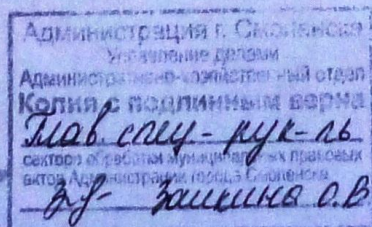 Администрация г. Смоленска
Управление делами
Административно-хозяйственный отдел
Копия с подлинным верна
Глав. спец - рук-ль
сектора обработки муниципальных правовых
актов Администрации города Смоленска
Заикина О.В.